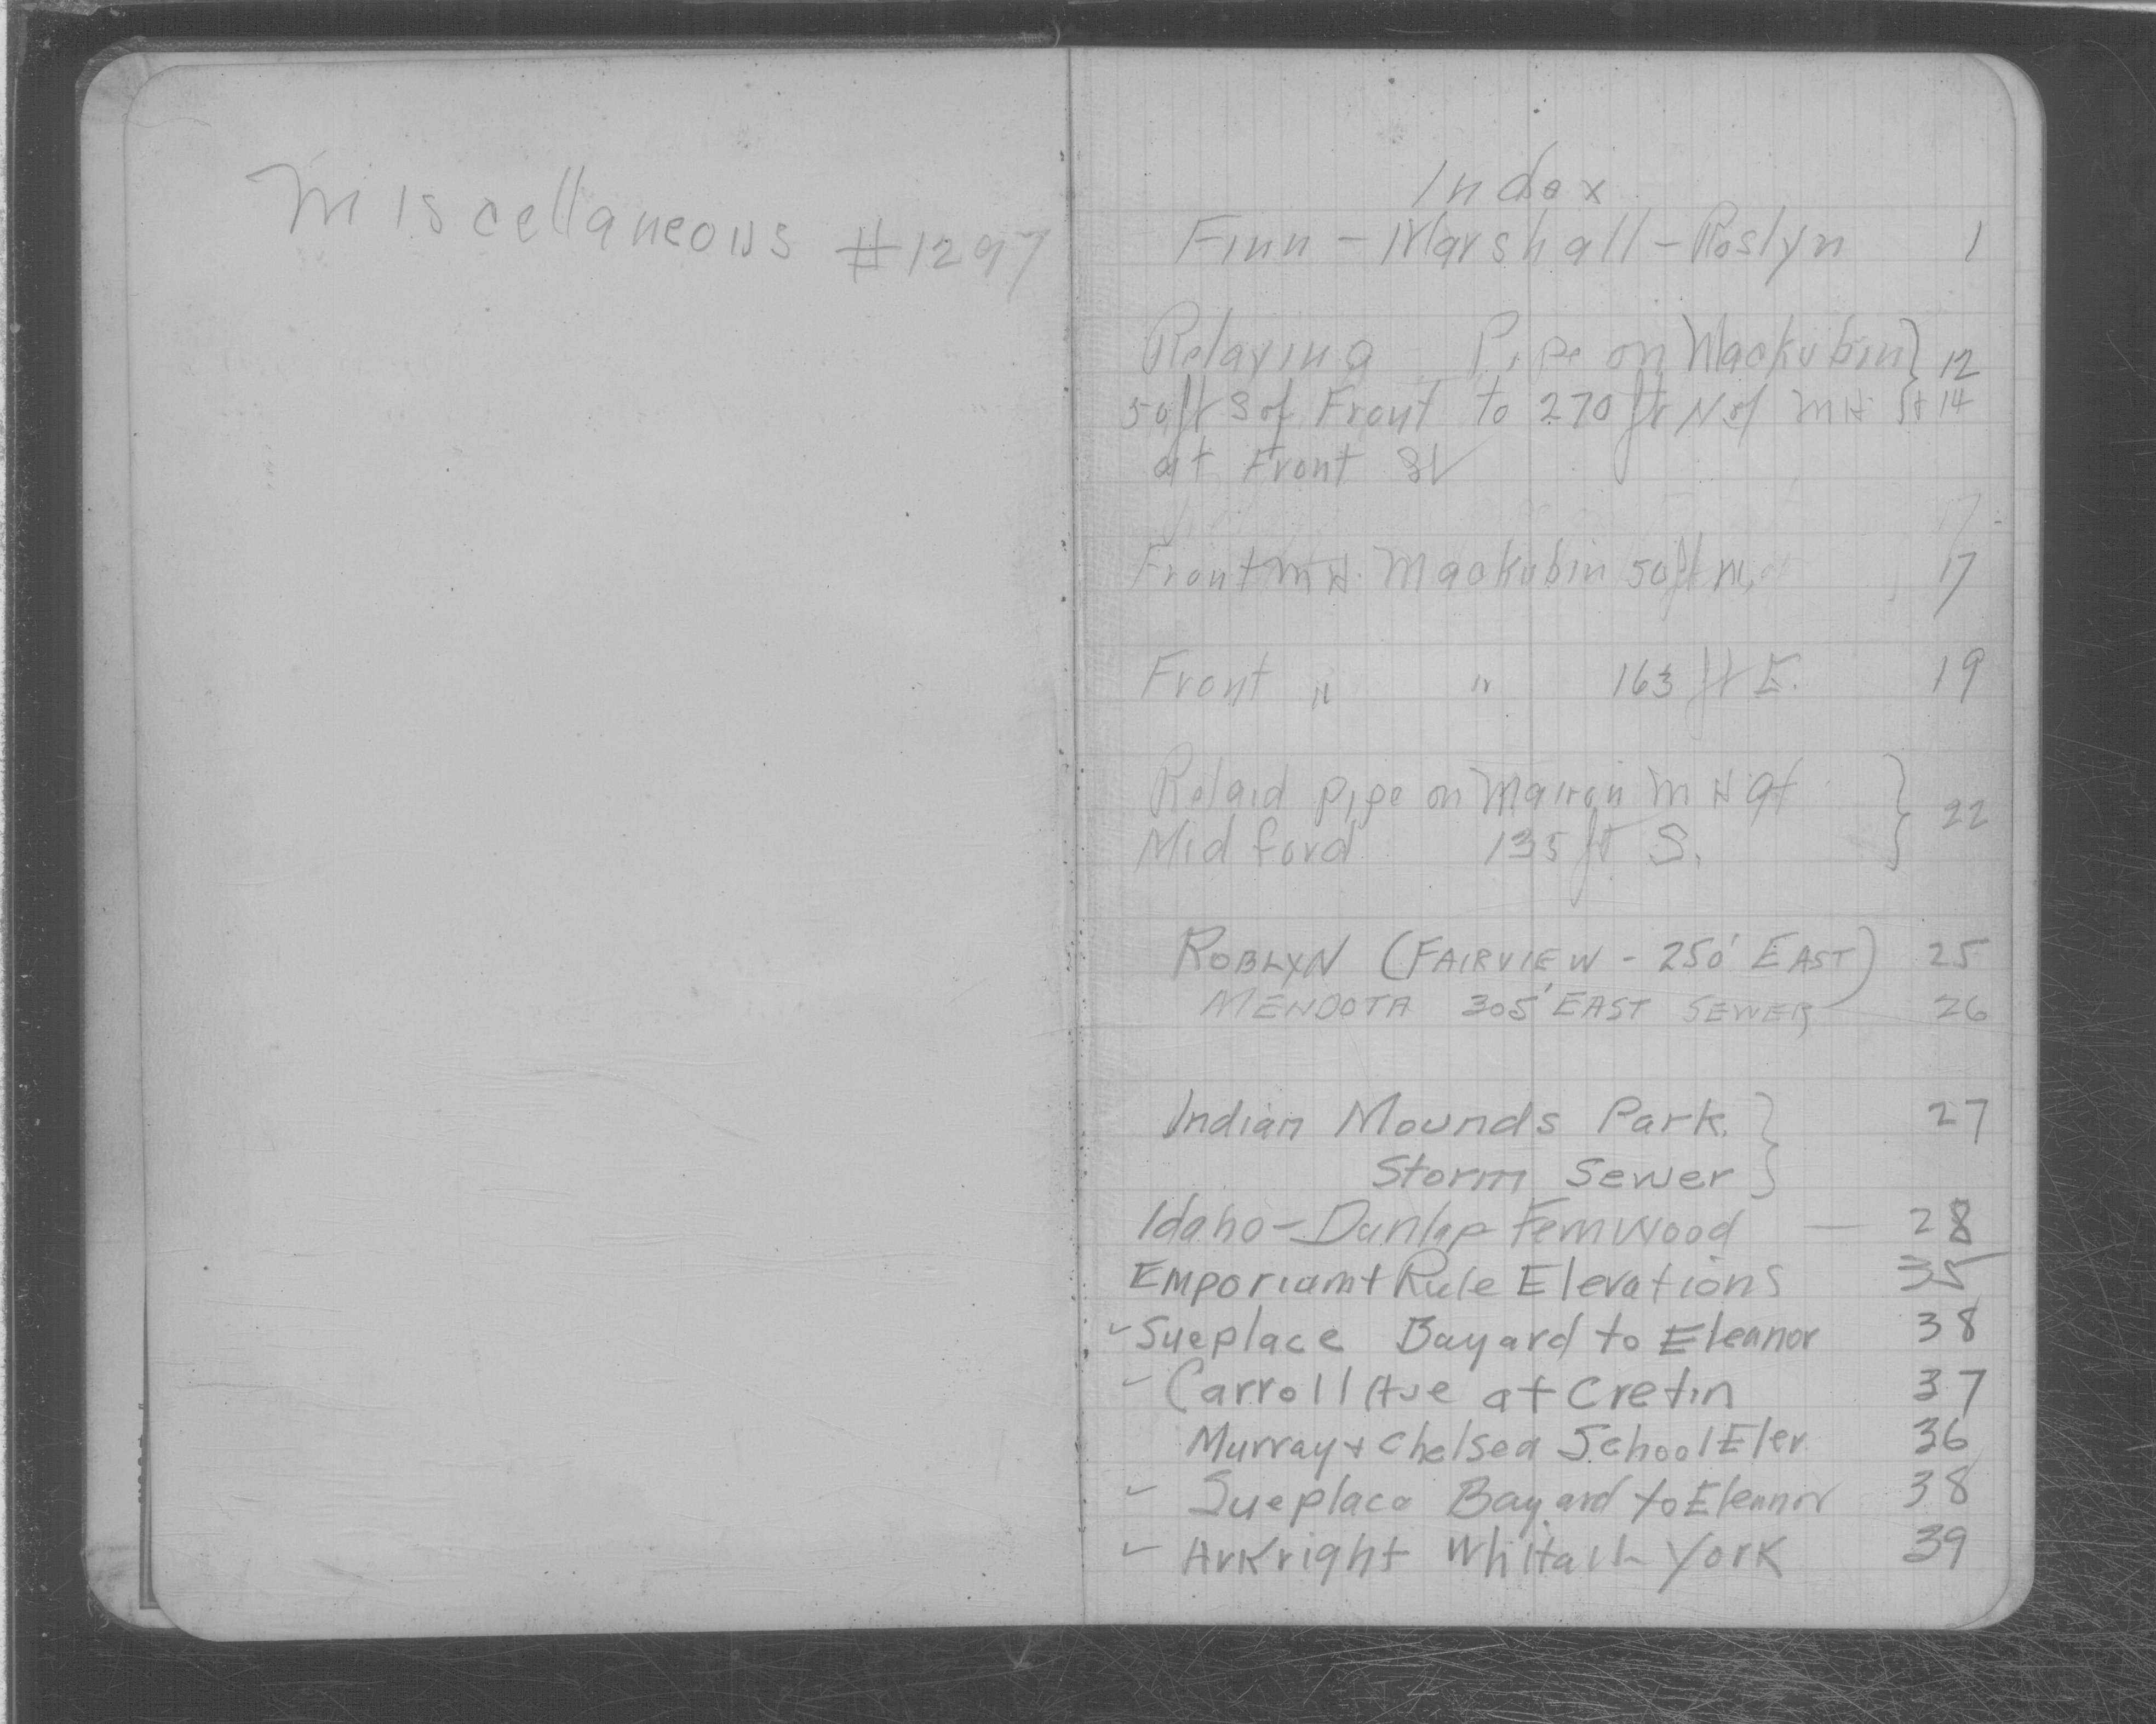 Miscellaneous #1297
Index
Finn - Marshall - Roslyn 1
Relaying Pipe on Mackubin } 12
50 ft S of Front to 270 ft N of MH } + 14
at Front St
Front MH. Mackubin 50 ft N. 17
Front " " 163 ft E. 19
Relaid pipe on Marion MH at } 22
Midford 135 ft S.
ROBLYN (FAIRVIEW - 250' EAST) 25
MENDOTA 305' EAST SEWER 26
Indian Mounds Park } 27
Storm Sewer
Idaho - Dunlap Fernwood — 28
Emporium + Rule Elevations 35
✓ Sueplace Bayard to Eleanor 38
✓ Carroll Ave at Cretin 37
Murray + Chelsea School Elev. 36
✓ Sueplace Bayard to Eleanor 38
✓ Arkright Whitall York 39